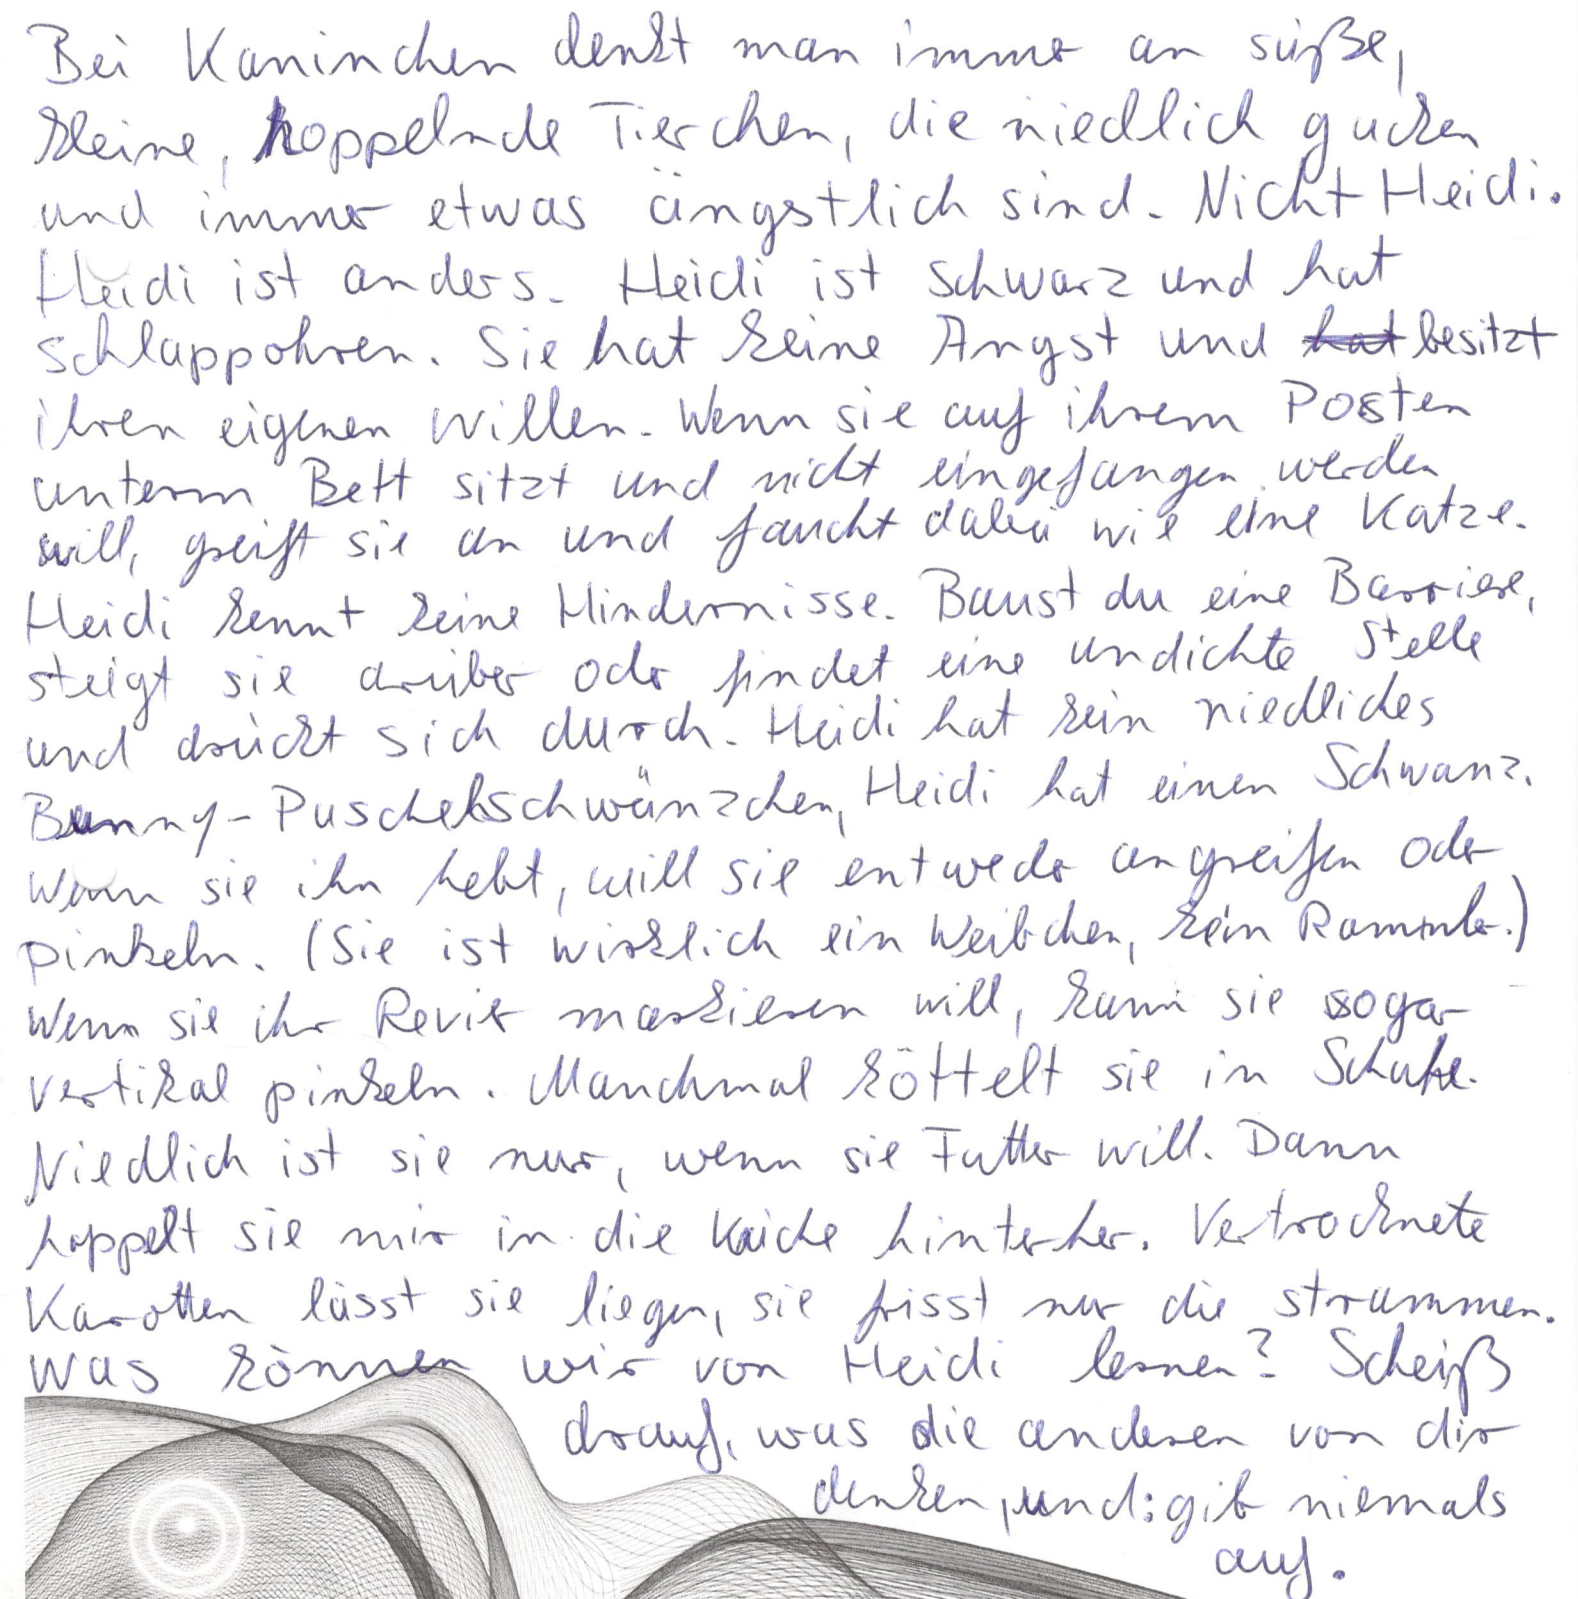 Bei Kaninchen denkt man immer an süße,
kleine, hoppelnde Tierchen, die niedlich gucken
und immer etwas ängstlich sind. Nicht Heidi.
Heidi ist anders. Heidi ist schwarz und hat
Schlappohren. Sie hat keine Angst und hat besitzt
ihren eigenen Willen. Wenn sie auf ihrem Posten
unterm Bett sitzt und nicht eingefangen werden
will, greift sie an und faucht dabei wie eine Katze.
Heidi kennt keine Hindernisse. Baust du eine Barriere,
steigt sie drüber oder findet eine undichte Stelle
und drückt sich durch. Heidi hat kein niedliches
Bunny-Puschelschwänzchen, Heidi hat einen Schwanz.
Wenn sie ihn hebt, will sie entweder angreifen oder
pinkeln. (Sie ist wirklich ein Weibchen, kein Rammler.)
Wenn sie ihr Revier markieren will, kann sie sogar
vertikal pinkeln. Manchmal köttelt sie in Schuhe.
Niedlich ist sie nur, wenn sie Futter will. Dann
hoppelt sie mir in die Küche hinterher. Vertrocknete
Karotten lässt sie liegen, sie frisst nur die strammen.
Was können wir von Heidi lernen? Scheiß
drauf, was die anderen von dir
denken, und: gib niemals
auf.